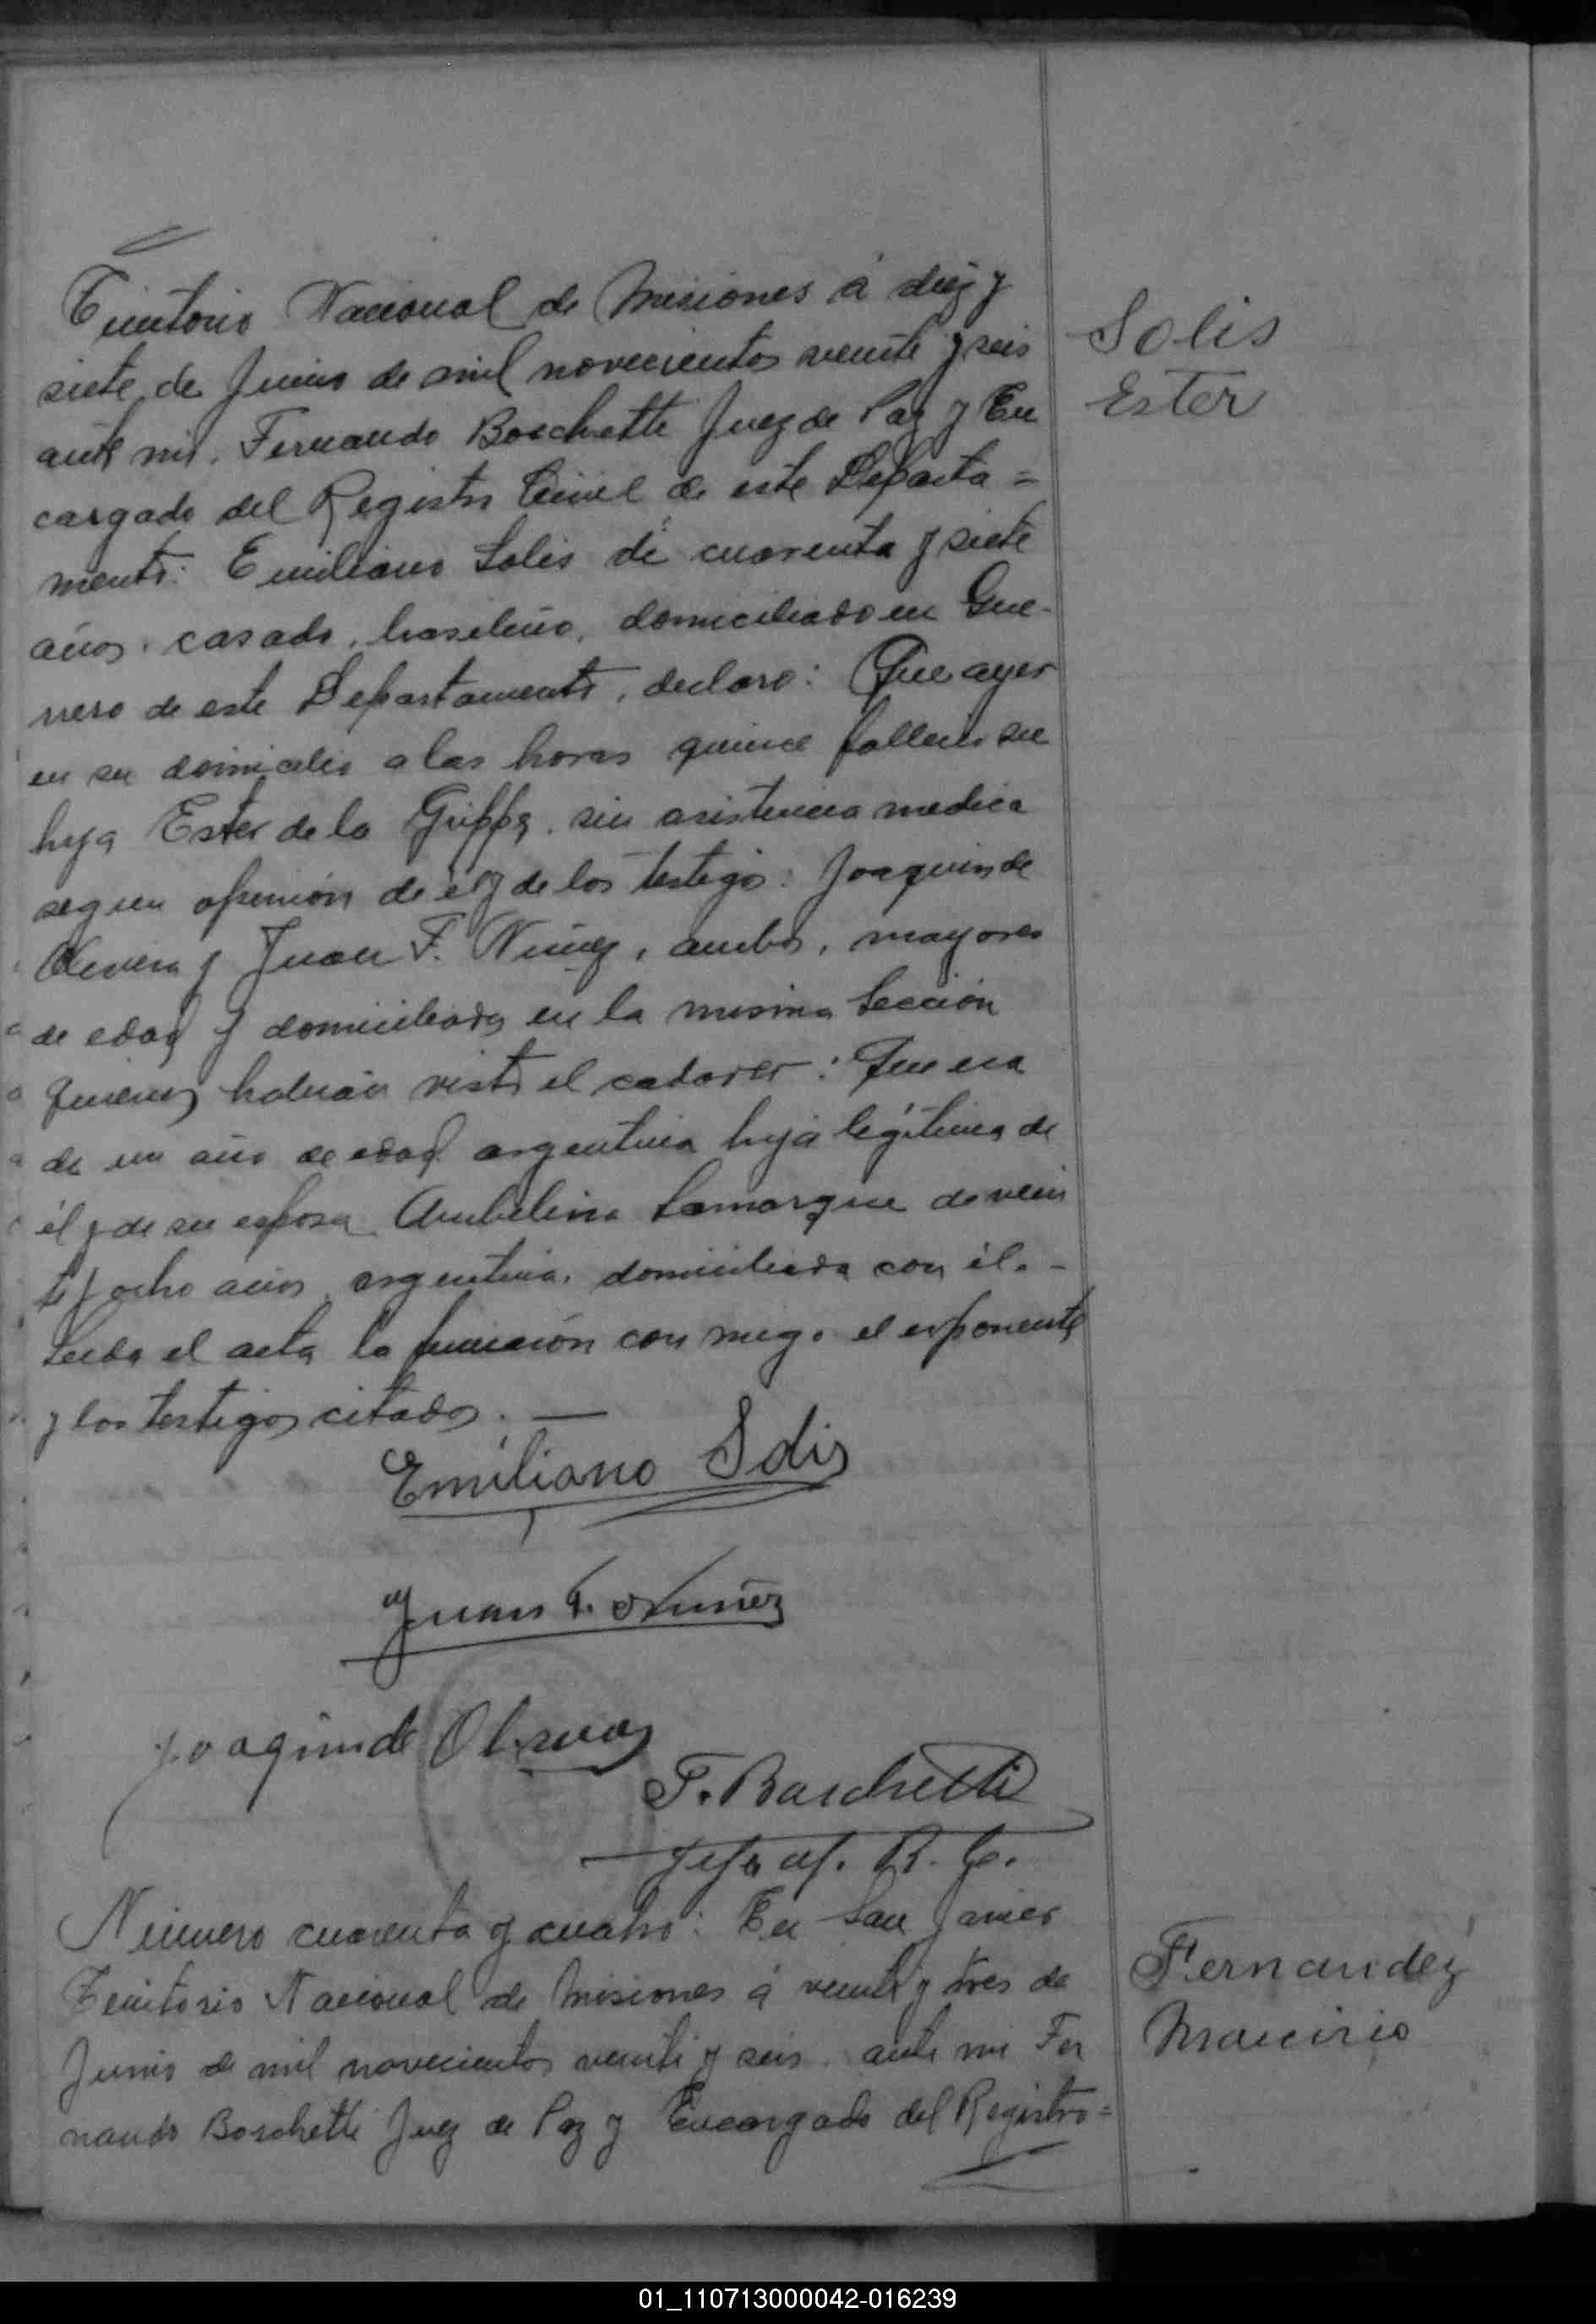 Territorio Nacional de Misiones á diez y
siete de Junio de mil novecientos veinte y seis
ante mi, Fernando Boschetti Juez de Paz y En
cargado del Registro Civil de este Departa=
mento: Emiliano Solis de cuarenta y siete
años, casado, brasileño, domiciliado en
de este Departamento, declaro: Que ayer
en su domicilio a las horas quince fallecio su
hija Ester de la Grippe, sin asistencia medica
segun opinión de él y de los testigos: Joaquin de
Olivera y Juan F. Nuñez, ambos, mayores
de edad y domiciliados en la misma Sección
quienes habian visto el cadaver: Que era
de un año de edad argentina hija legítima de
él y de su esposa Ambelina Lamarque de vein
te y ocho años, argentina, domiciliada con él. -
Leida el acta la firmaron con migo el exponente
y los testigos citados. —
Solis
Ester
Emiliano Solis
Juan F. Nuñez
Joaquin de
F. Boschetti
R. C.
Número cuarenta y cuatro: En San Javier
Territorio Nacional de Misiones á veinte y tres de
Junio de mil novecientos veinte y seis, ante mi Fer
nando Boschetti Juez de Paz y Encargado del Registro=
Fernandez
Mauricio
01_110713000042-016239